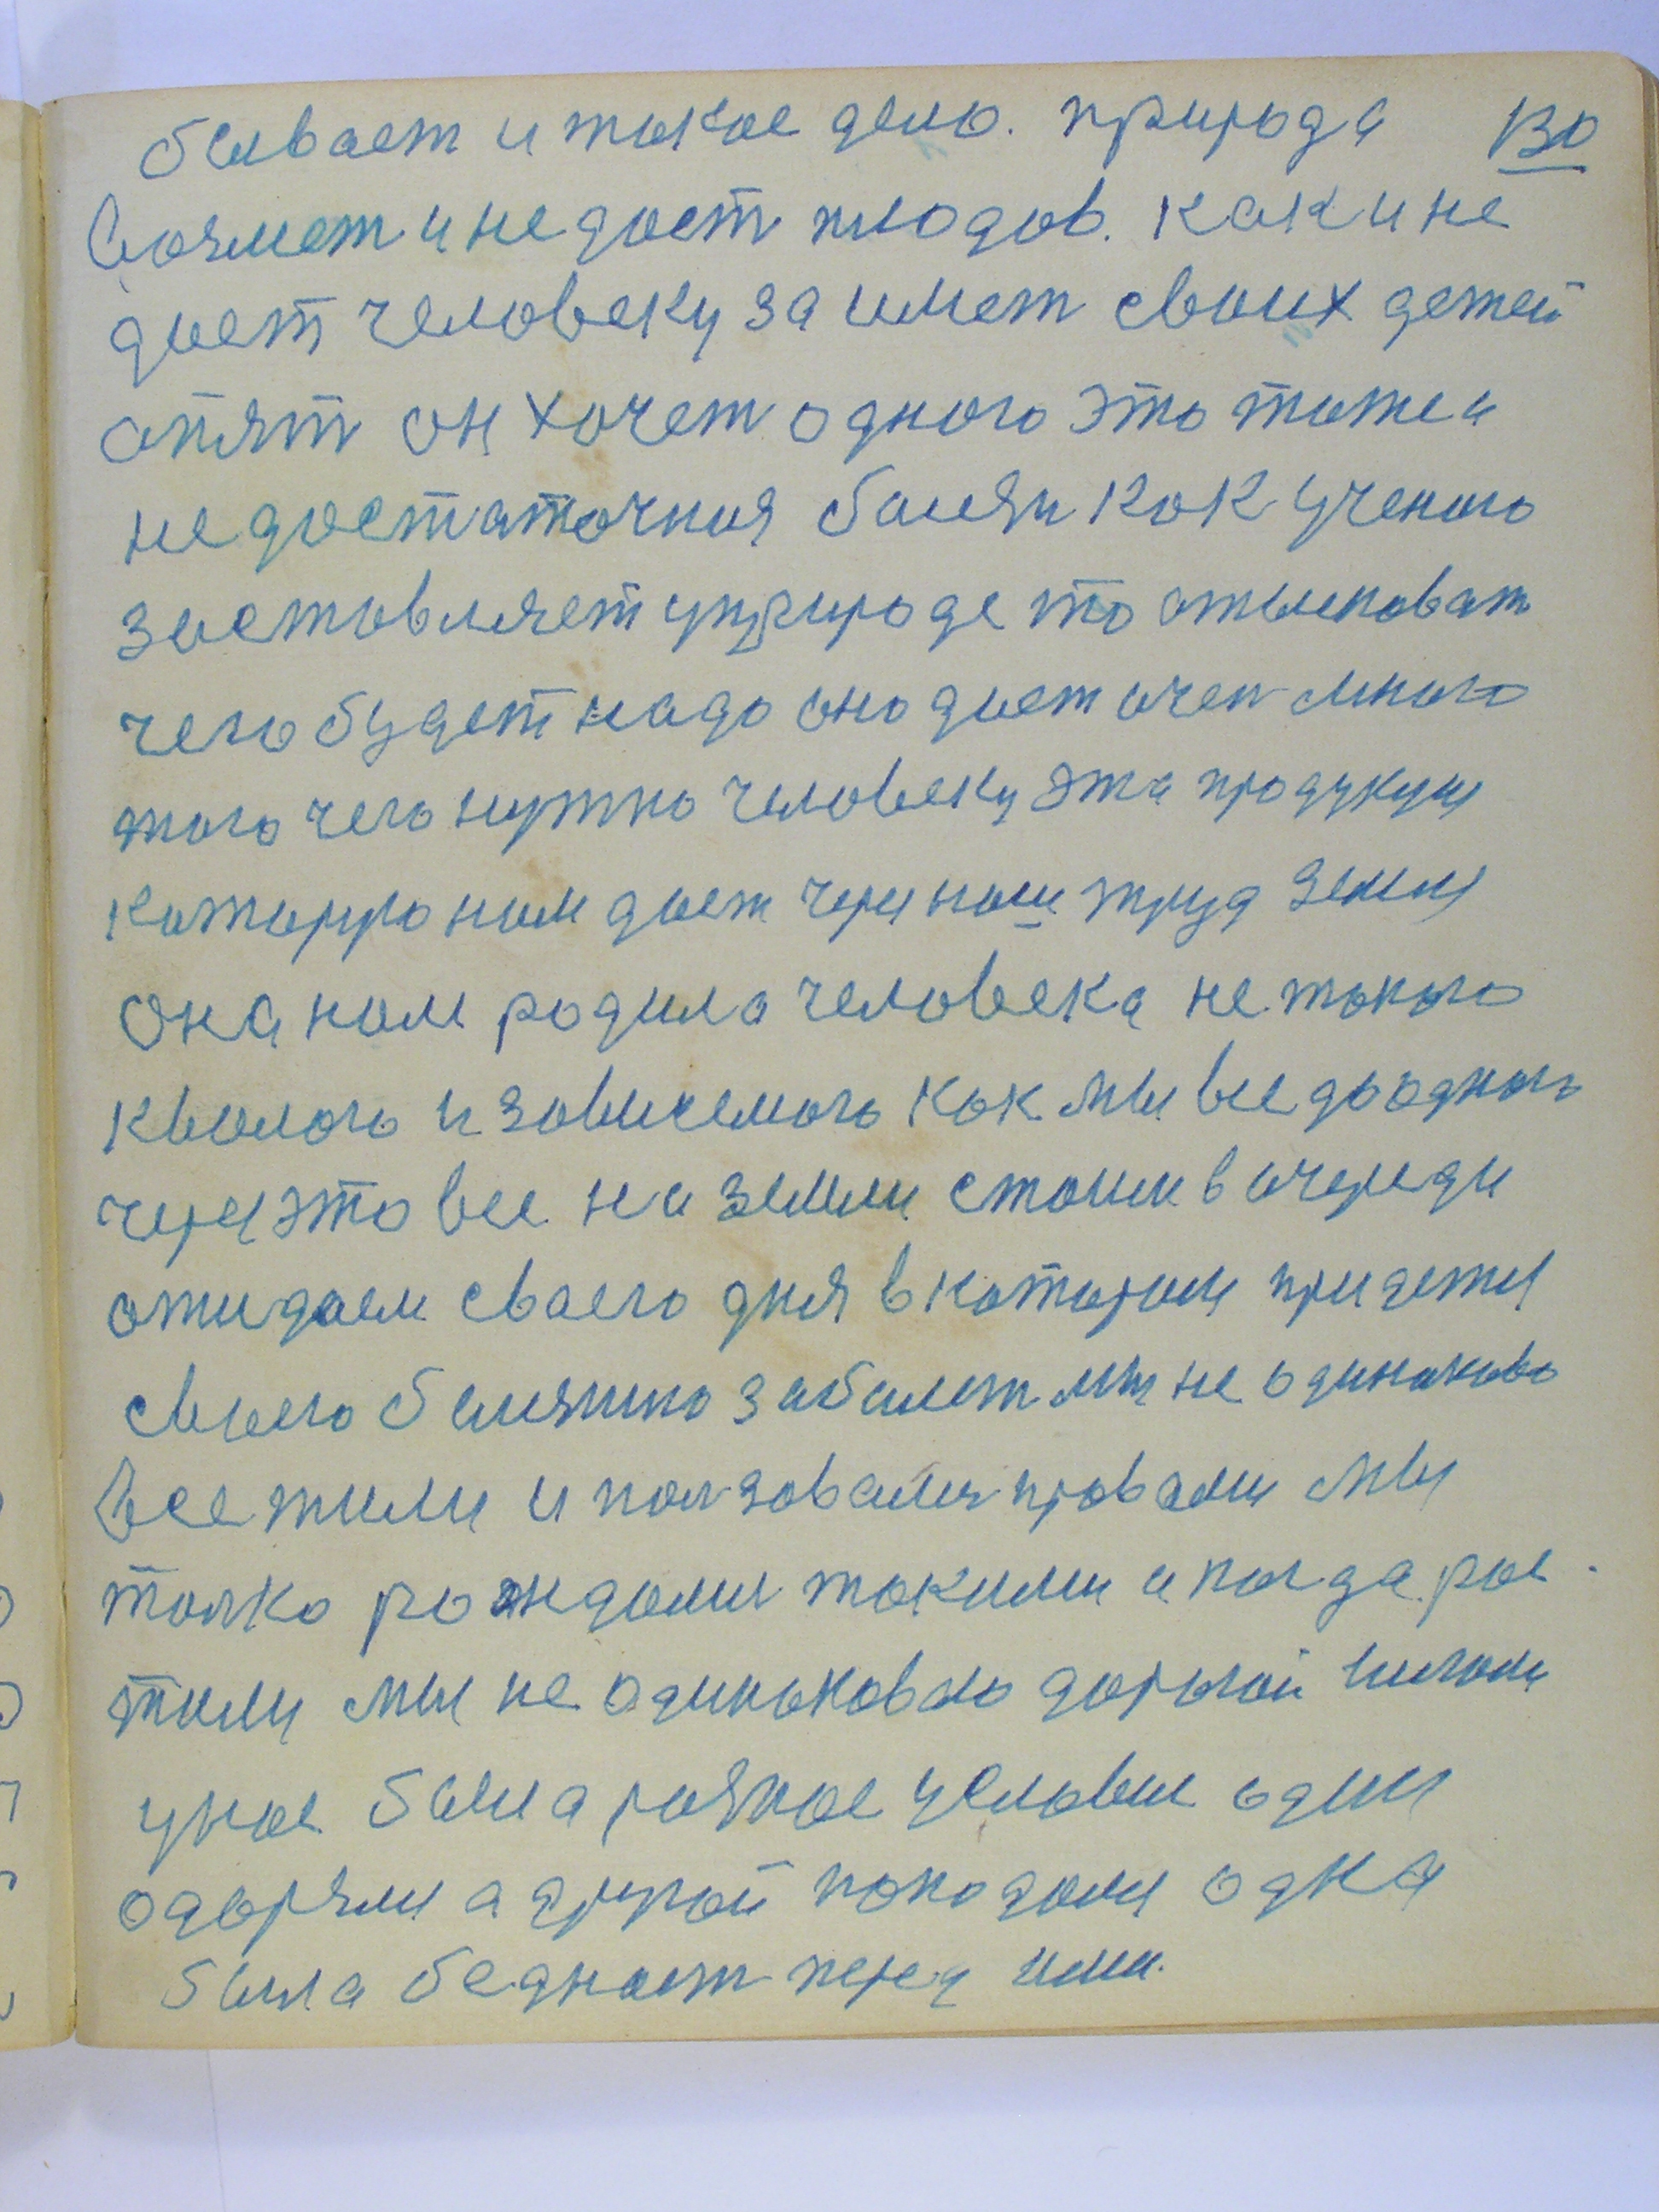 бывает и такое дело. природа 130
возмет и не даст плодов. как и не
дает человеку за имет своих детей
опят он хочет одного это тоже и
не достаточная болязн как ученого
заставляет уприроде то отысковат
чего будет надо оно дает очен много
того чего нужно человеку эта продукция
которую нам дает через наш труд земля
она нам родила человека не такого
квёлого и зависемого как мы все до одного
через это все на земли стоим в очереди
ожидаем своего дня в котором придется
своего болязнию заболет мы не одинаково
все жили и ползовалися правами мы
толко рождалис такими и тогда рос
тили мы не одинаковаю дорогой шли
унас была разное условие одни
одоряли а другой попадали одна
была бедност перед ими.